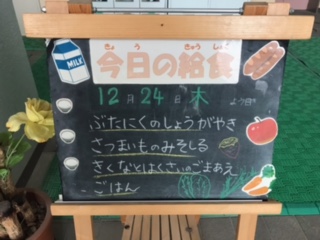 MILK
きょう きゅうしょく
今日の給食
12月24日 木 よう日
ぶたにくのしょうがやき
さつまいものみそしる
きくなとはくさいのごまあえ
ごはん